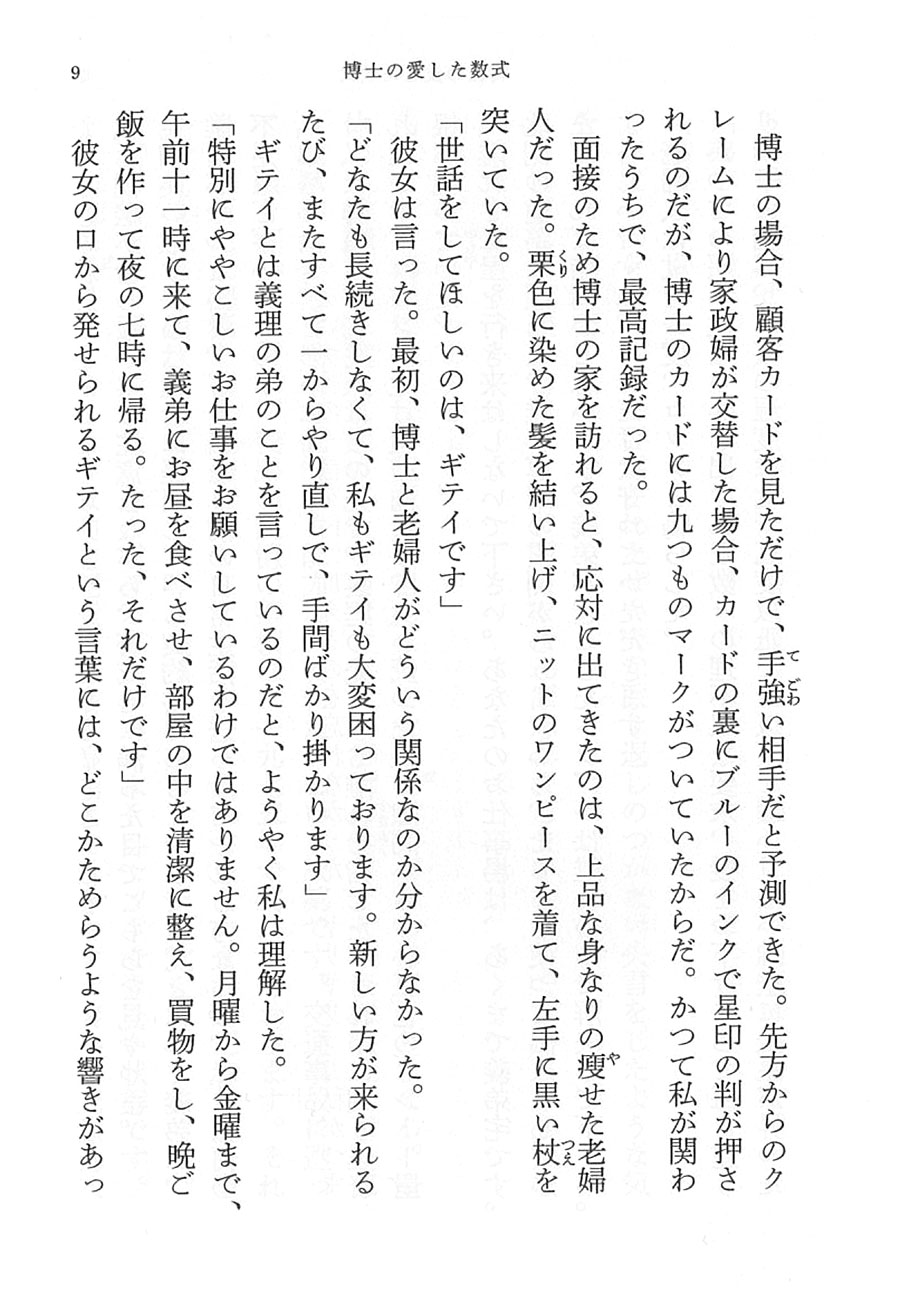 9
博士の愛した数式
博士の場合、顧客カードを見ただけで、手強い相手だと予測できた。先方からのク
レームにより家政婦が交替した場合、カードの裏にブルーのインクで星印の判が押さ
れるのだが、博士のカードには九つものマークがついていたからだ。かつて私が関わ
ったうちで、最高記録だった。
面接のため博士の家を訪れると、応対に出てきたのは、上品な身なりの瘦せた老婦
人だった。栗色に染めた髪を結い上げ、ニットのワンピースを着て、左手に黒い杖を
突いていた。
「世話をしてほしいのは、ギテイです」
彼女は言った。最初、博士と老婦人がどういう関係なのか分からなかった。
「どなたも長続きしなくて、私もギテイも大変困っております。新しい方が来られる
たび、またすべて一からやり直しで、手間ばかり掛かります」
ギテイとは義理の弟のことを言っているのだと、ようやく私は理解した。
「特別にややこしいお仕事をお願いしているわけではありません。月曜から金曜まで、
午前十一時に来て、義弟にお昼を食べさせ、部屋の中を清潔に整え、買物をし、晩ご
飯を作って夜の七時に帰る。たった、それだけです」
彼女の口から発せられるギテイという言葉には、どこかためらうような響きがあっ